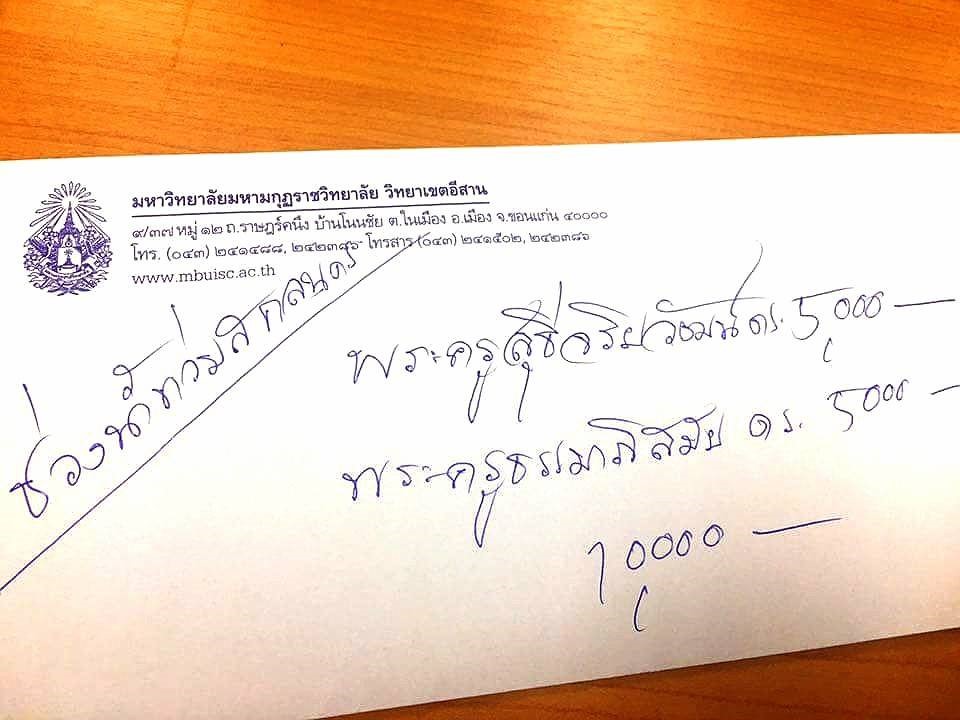 มหาวิทยาลัยมหามกุฏราชวิทยาลัย วิทยาเขตอีสาน
๙/๓๗ หมู่ ๑๒ ถ.ราษฎร์คนึง บ้านโนนชัย ต.ในเมือง อ.เมือง จ.ขอนแก่น ๔๐๐๐๐
โทร. (๐๔๓) ๒๔๑๔๘๘, ๒๔๒๓๘๖ โทรสาร (๐๔๓) ๒๔๑๕๐๒, ๒๔๒๓๘๖
www.mbuisc.ac.th
ช่วงน้ำท่วมสกลนคร
พระครูสุธีจริยวัฒน์ ดร. 5,000 —
พระครูธรรมาภิสมัย ดร. 5000 —
10,000 —